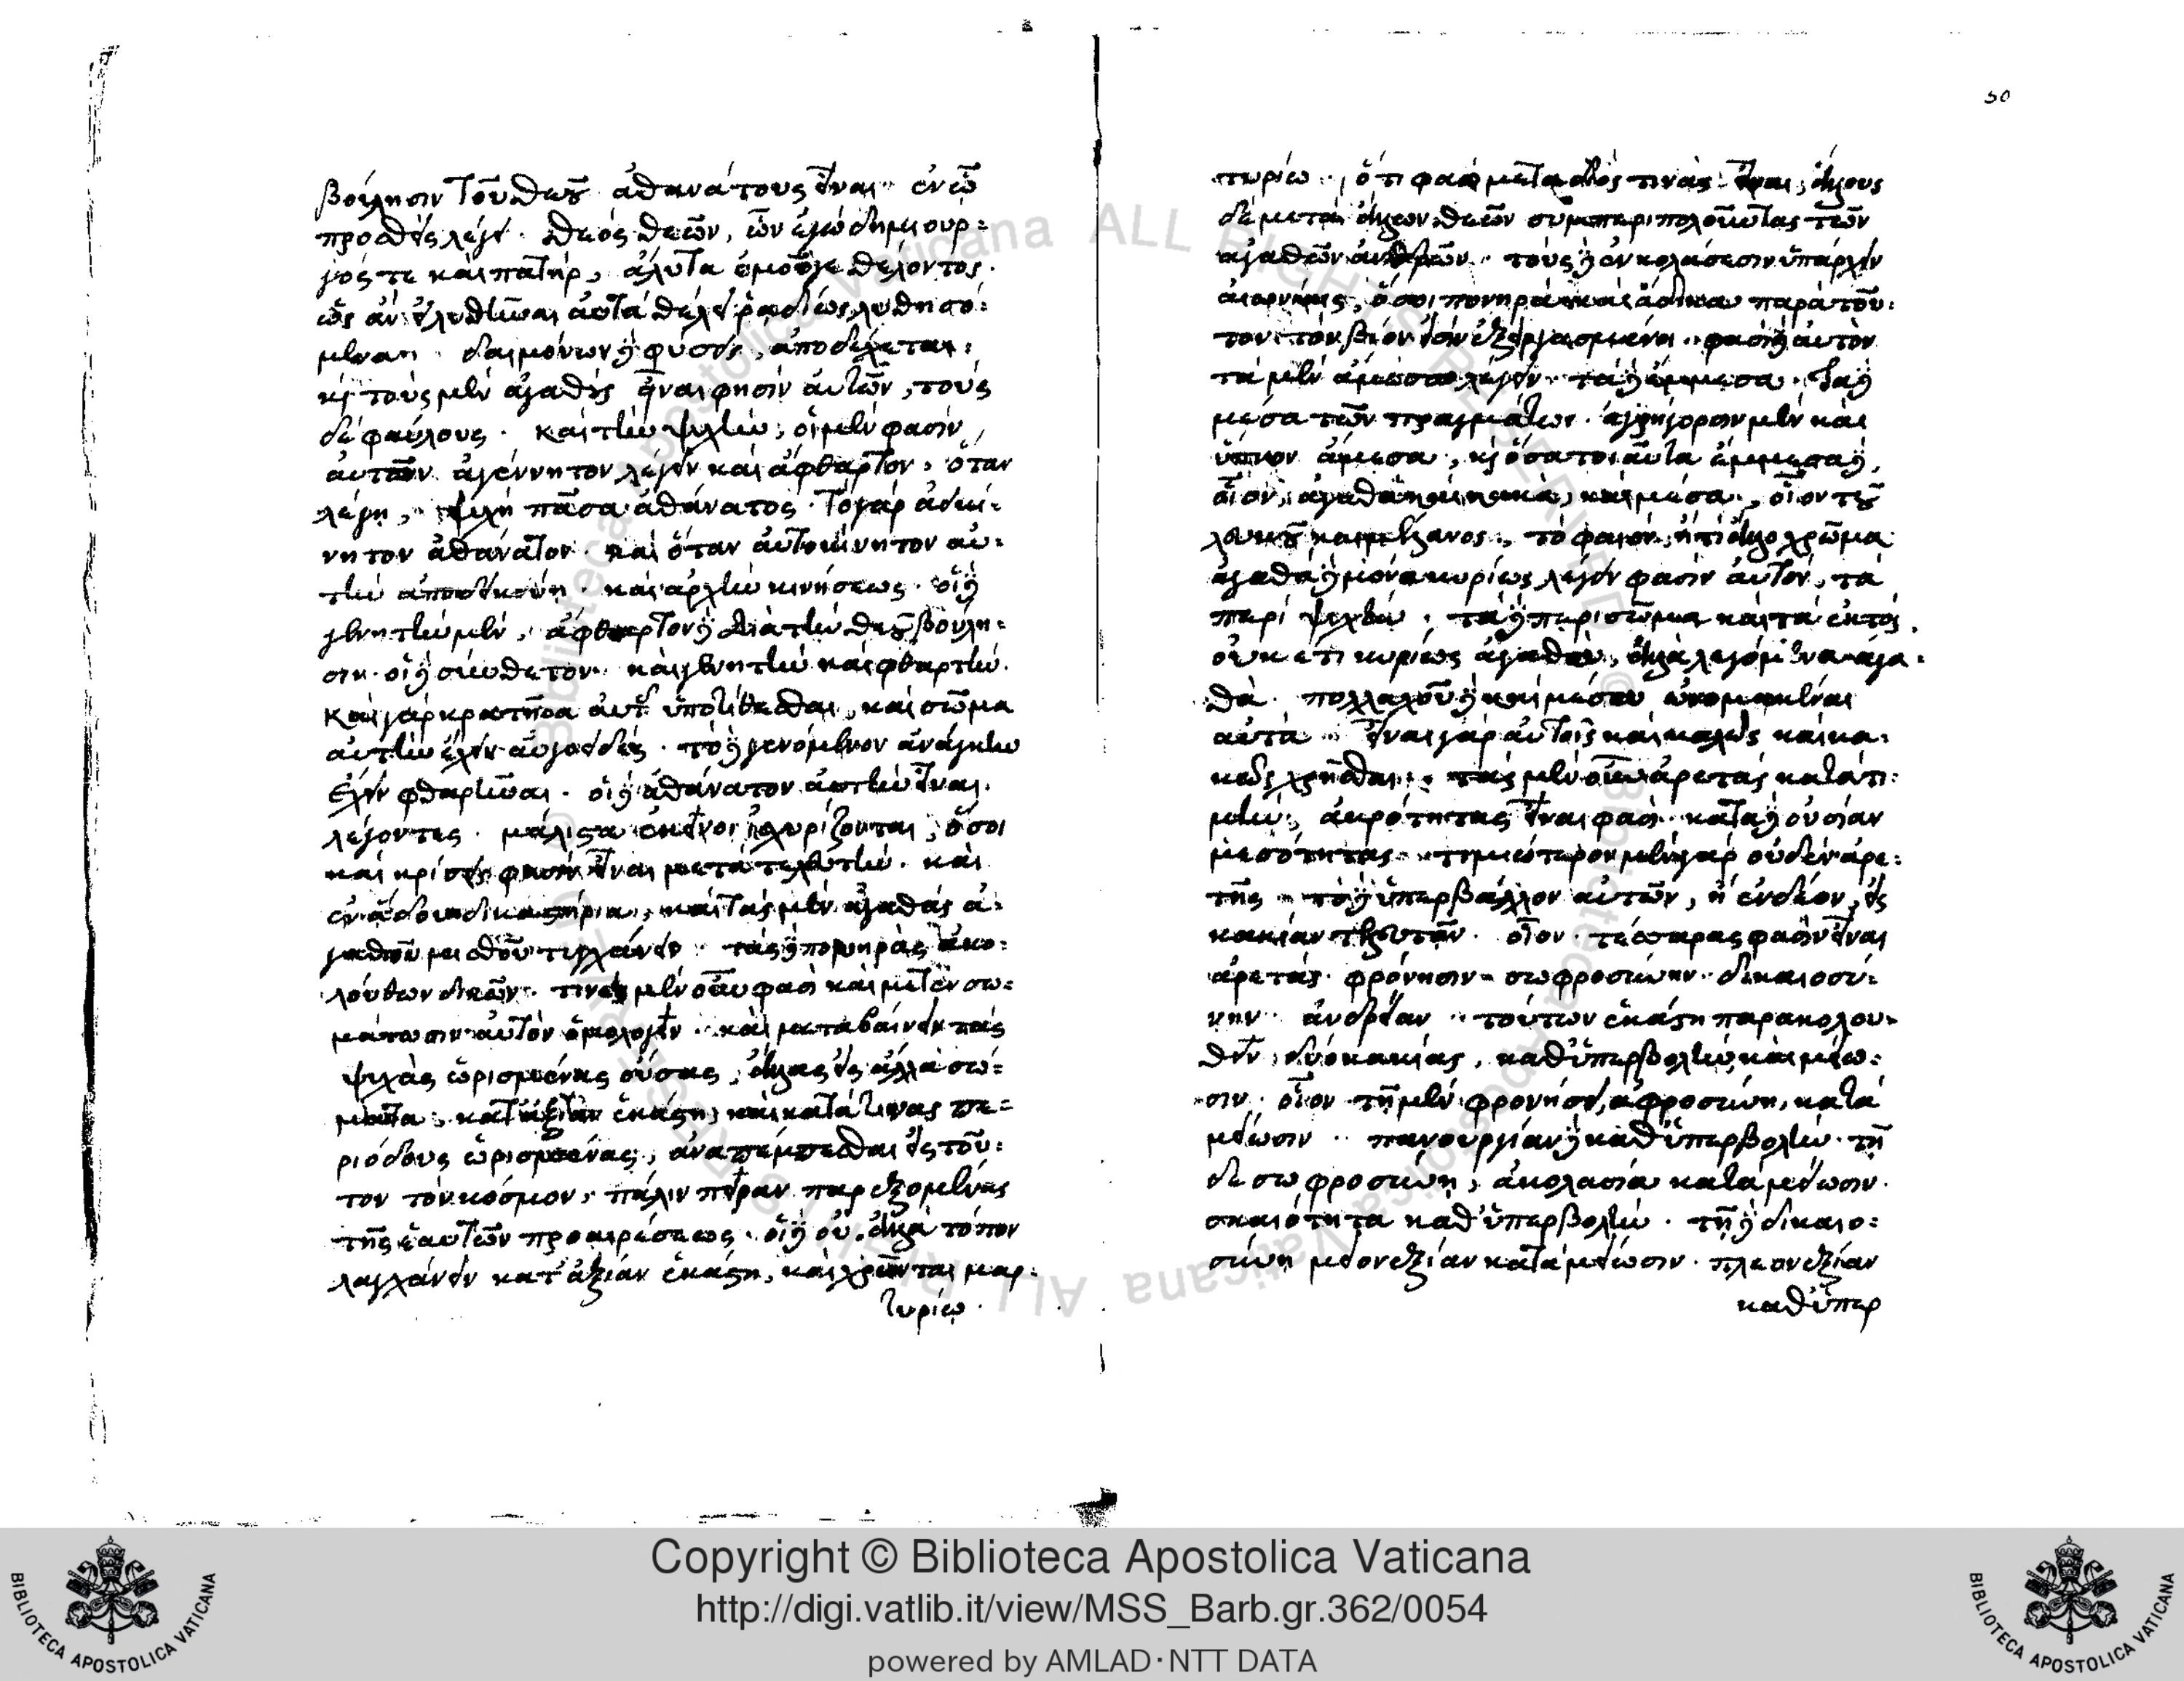 50
βούλησιν τοῦ θεοῦ ἀθανάτους εἶναι ἐν ᾧ
προσθεὶς λέγει. θεὸς θεῶν, ὧν ἐγὼ δημιουρ=
γός τε καὶ πατήρ, ἄλυτα ἐμοῦ γε θέλοντος.
ὡς ἂν εἰ λυθῆναι αὐτὰ θέλει ῥαδίως λυθησό=
μενα. δαιμόνων δὲ φύσεις ἀποδέχεται,
καὶ τοὺς μὲν ἀγαθοὺς εἶναί φησιν αὐτῶν, τοὺς
δὲ φαύλους. καὶ τὴν ψυχὴν, οἱ μέν φασιν
αὐτὸν ἀγέννητον λέγειν καὶ ἄφθαρτον, ὅταν
λέγῃ, ψυχὴ πᾶσα ἀθάνατος. τὸ γὰρ ἀεικί=
νητον ἀθάνατον καὶ ὅταν αὐτοκίνητον αὐ=
τὴν ἀποδεικνύῃ. καὶ ἀρχὴν κινήσεως. οἱ δὲ
γενητὴν μὲν, ἄφθαρτον δὲ διὰ τὴν θεοῦ βούλη=
σιν. οἱ δὲ σύνθετον καὶ γενητὴν καὶ φθαρτὴν.
καὶ γὰρ κρατῆρα αὐτῆς ὑποτίθεσθαι, καὶ σῶμα
αὐτὴν ἔχειν αὐγοειδές. τὸ δὲ γενόμενον ἀνάγκην
ἔχειν φθαρῆναι. οἱ δὲ ἀθάνατον αὐτὴν εἶναι
λέγοντες. μάλιστα ἐκεῖνοι ἰσχυρίζονται, ὅσοι
καὶ κρίσεις φασὶν εἶναι μετὰ τελευτὴν. καὶ
ἐν ᾅδου δικαστήρια, καὶ τὰς μὲν ἀγαθὰς ἀ=
γαθοῦ μισθοῦ τυγχάνειν. τὰς δὲ πονηρὰς ἀκο=
λούθων δικῶν. τινὲς μὲν οὖν φασὶ καὶ μετενσω=
μάτωσιν αὐτὸν ὁμολογεῖν. καὶ μεταβαίνειν τὰς
ψυχὰς ὡρισμένας οὔσας, ἄλλας εἰς ἄλλα σώ=
ματα, κατ' ἀξίαν ἑκάστη, καὶ κατά τινας πε=
ριόδους ὡρισμένας, ἀναπέμπεσθαι εἰς τοῦ=
τον τὸν κόσμον, πάλιν πεῖραν παρεξομένας
τῆς ἑαυτῶν προαιρέσεως. οἱ δὲ οὐ. ἀλλὰ τόπον
λαγχάνειν κατ' ἀξίαν ἑκάστη, καὶ χρῶνται μαρ=
τυρίῳ.
τυρίῳ, ὅτι φασὶ μετὰ διός τινὰς εἶναι, ἄλλους
δὲ μετὰ ἄλλων θεῶν συμπεριπολοῦντας τῶν
ἀγαθῶν ἀνδρῶν. τοὺς δὲ ἐν κολάσεσιν ὑπάρχειν
αἰωνίαις, ὅσοι πονηρὰ καὶ ἄδικα παρὰ τοῦ=
τον τὸν βίον εἰσὶν ἐξειργασμένοι. φασὶ δὲ αὐτὸν
τὰ μὲν ἄμεσα λέγειν. τὰ δὲ ἔμμεσα. τὰ δὲ
μέσα τῶν πραγμάτων. ἐγρήγορσιν μὲν καὶ
ὕπνον ἄμεσα, καὶ ὅσα τοιαῦτα ἔμμεσα δὲ,
οἷον, ἀγαθὰ καὶ κακὰ, καὶ μέσα, οἷον τοῦ
λευκοῦ καὶ μέλανος, τὸ φαιὸν, ἤ τι ἄλλο χρῶμα
ἀγαθὰ δὲ μόνα κυρίως λέγειν φασὶν αὐτὸν, τὰ
περὶ ψυχήν, τὰ δὲ περὶ σῶμα καὶ τὰ ἐκτός.
οὐκ ἔτι κυρίως ἀγαθὰ, ἀλλὰ λεγόμενα ἀγα=
θὰ. πολλαχοῦ δὲ καὶ μέσα ὠνομακέναι
αὐτὰ. εἶναι γὰρ αὐτοῖς καὶ καλῶς καὶ κα=
κῶς χρῆσθαι. τὰς μὲν οὖν ἀρετὰς κατὰ τι=
μὴν, ἀκρότητας εἶναι φασὶ. κατὰ δὲ οὐσίαν
μεσότητας. τιμιώτερον μὲν γὰρ οὐδὲν ἀρε=
τῆς. τὸ δὲ ὑπερβάλλον αὐτῶν, ἢ ἐνδέον, εἰς
κακίαν τελευτᾶν. οἷον. τέσσαρας φασὶν εἶναι
ἀρετάς. φρόνησιν. σωφροσύνην. δικαιοσύ=
νην. ἀνδρείαν. τούτων ἑκάστη παρακολου=
θεῖν δύο κακίας, καθ' ὑπερβολὴν καὶ μείω=
σιν. οἷον τῇ μὲν φρονήσει, ἀφροσύνην, κατὰ
μείωσιν. πανουργίαν δὲ καθ' ὑπερβολὴν. τῇ
δὲ σωφροσύνῃ, ἀκολασίαν κατὰ μείωσιν.
σκαιότητα καθ' ὑπερβολὴν. τῇ δὲ δικαιο=
σύνῃ μειονεξίαν κατὰ μείωσιν. πλεονεξίαν
καθ' ὑπερ
Copyright © Biblioteca Apostolica Vaticana
http://digi.vatlib.it/view/MSS_Barb.gr.362/0054
powered by AMLAD·NTT DATA
BIBLIOTECA APOSTOLICA VATICANA
BIBLIOTECA APOSTOLICA VATICANA